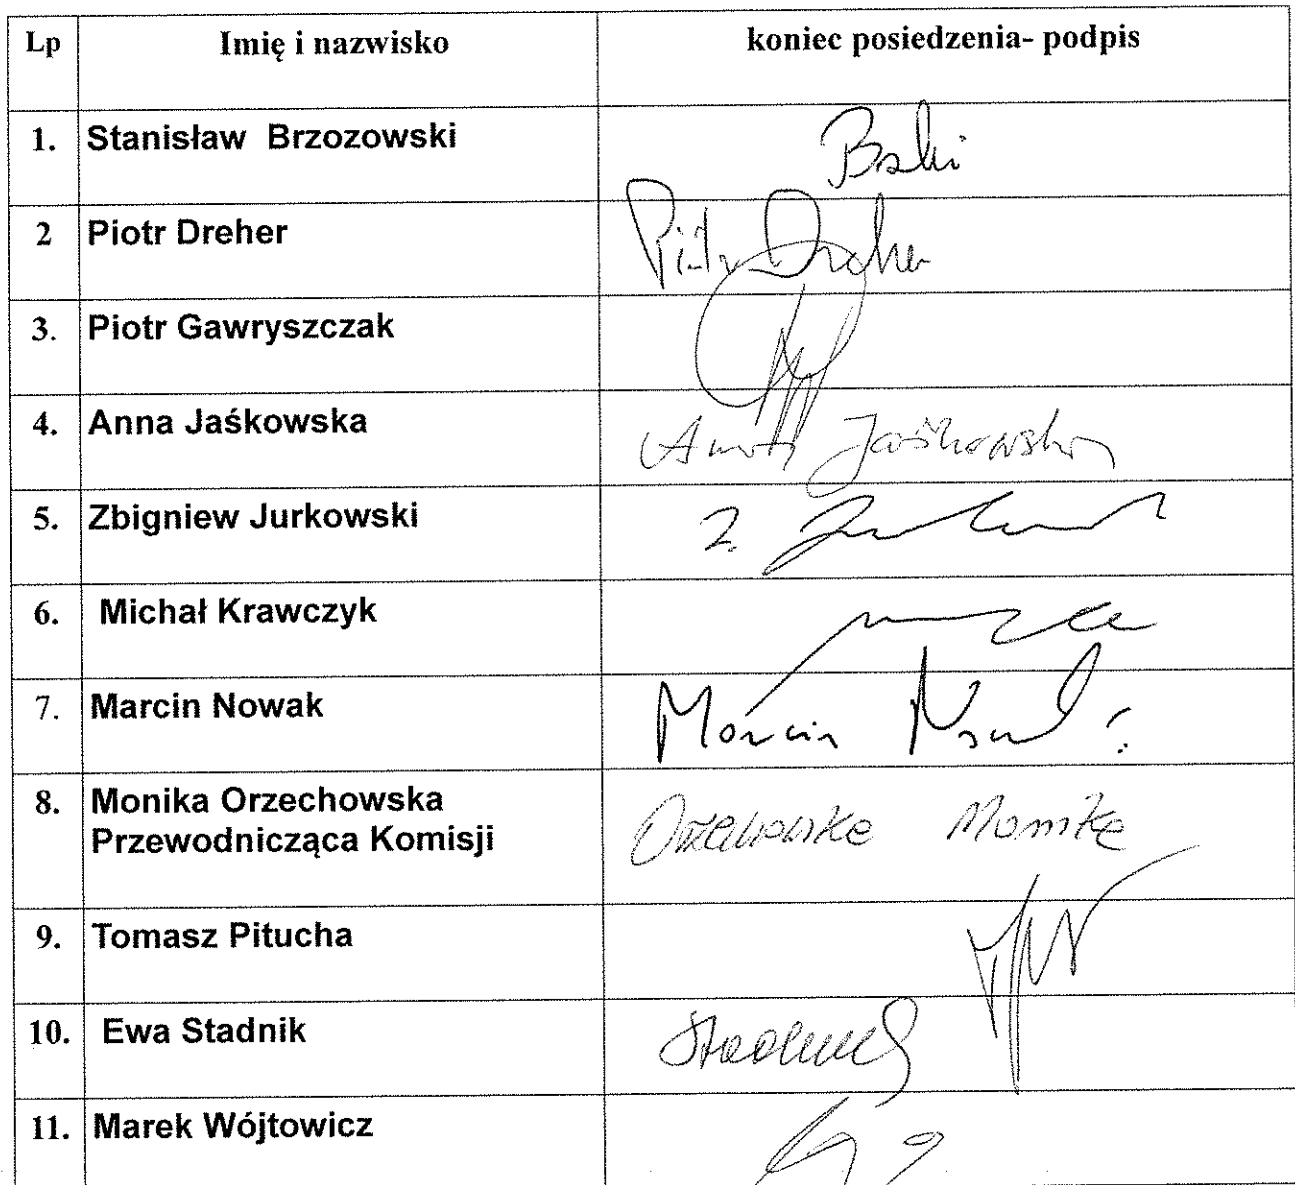 Lp Imię i nazwisko koniec posiedzenia- podpis
1. Stanisław Brzozowski
2 Piotr Dreher Piotr Dreher
3. Piotr Gawryszczak
4. Anna Jaśkowska Anna Jaśkowska
5. Zbigniew Jurkowski
6. Michał Krawczyk
7. Marcin Nowak Marcin Nowak
8. Monika Orzechowska
Przewodnicząca Komisji Orzechowska Monika
9. Tomasz Pitucha
10. Ewa Stadnik Stadnik
11. Marek Wójtowicz